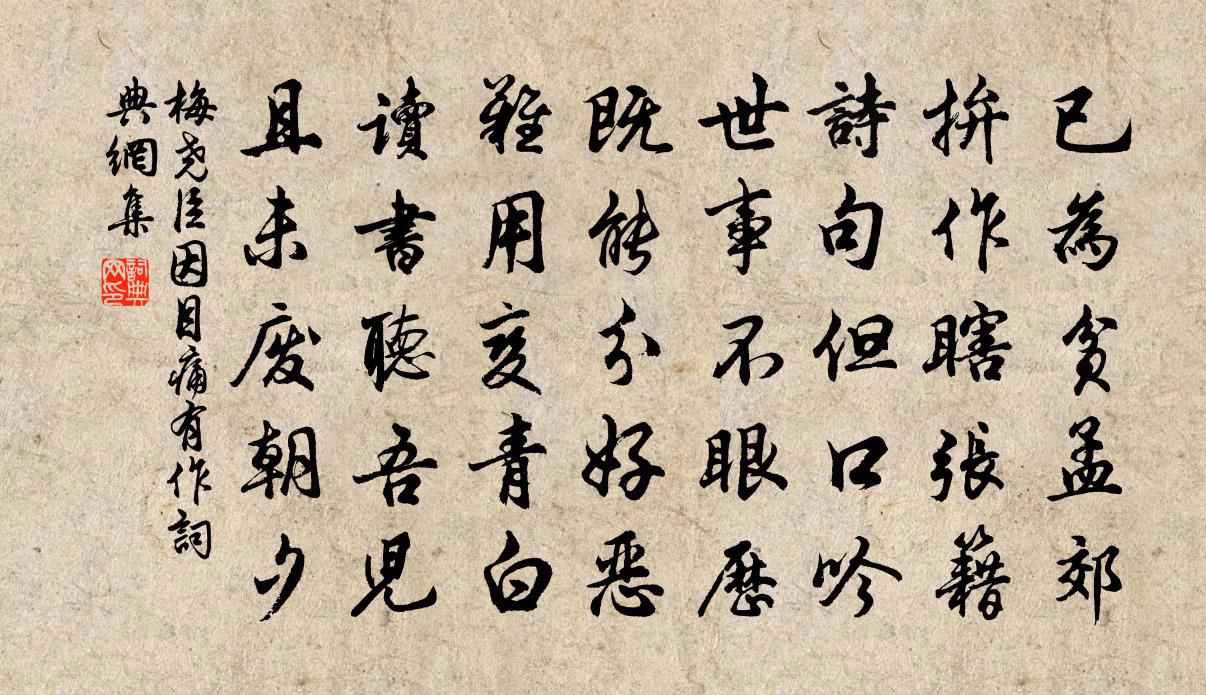 已為貧孟郊
拚作瞎張籍
詩句但口吟
世事不眼歷
既能分好惡
難用變青白
讀書聽吾兒
且未廢朝夕
梅堯臣因目痛有作詞
典網集
詞典网印